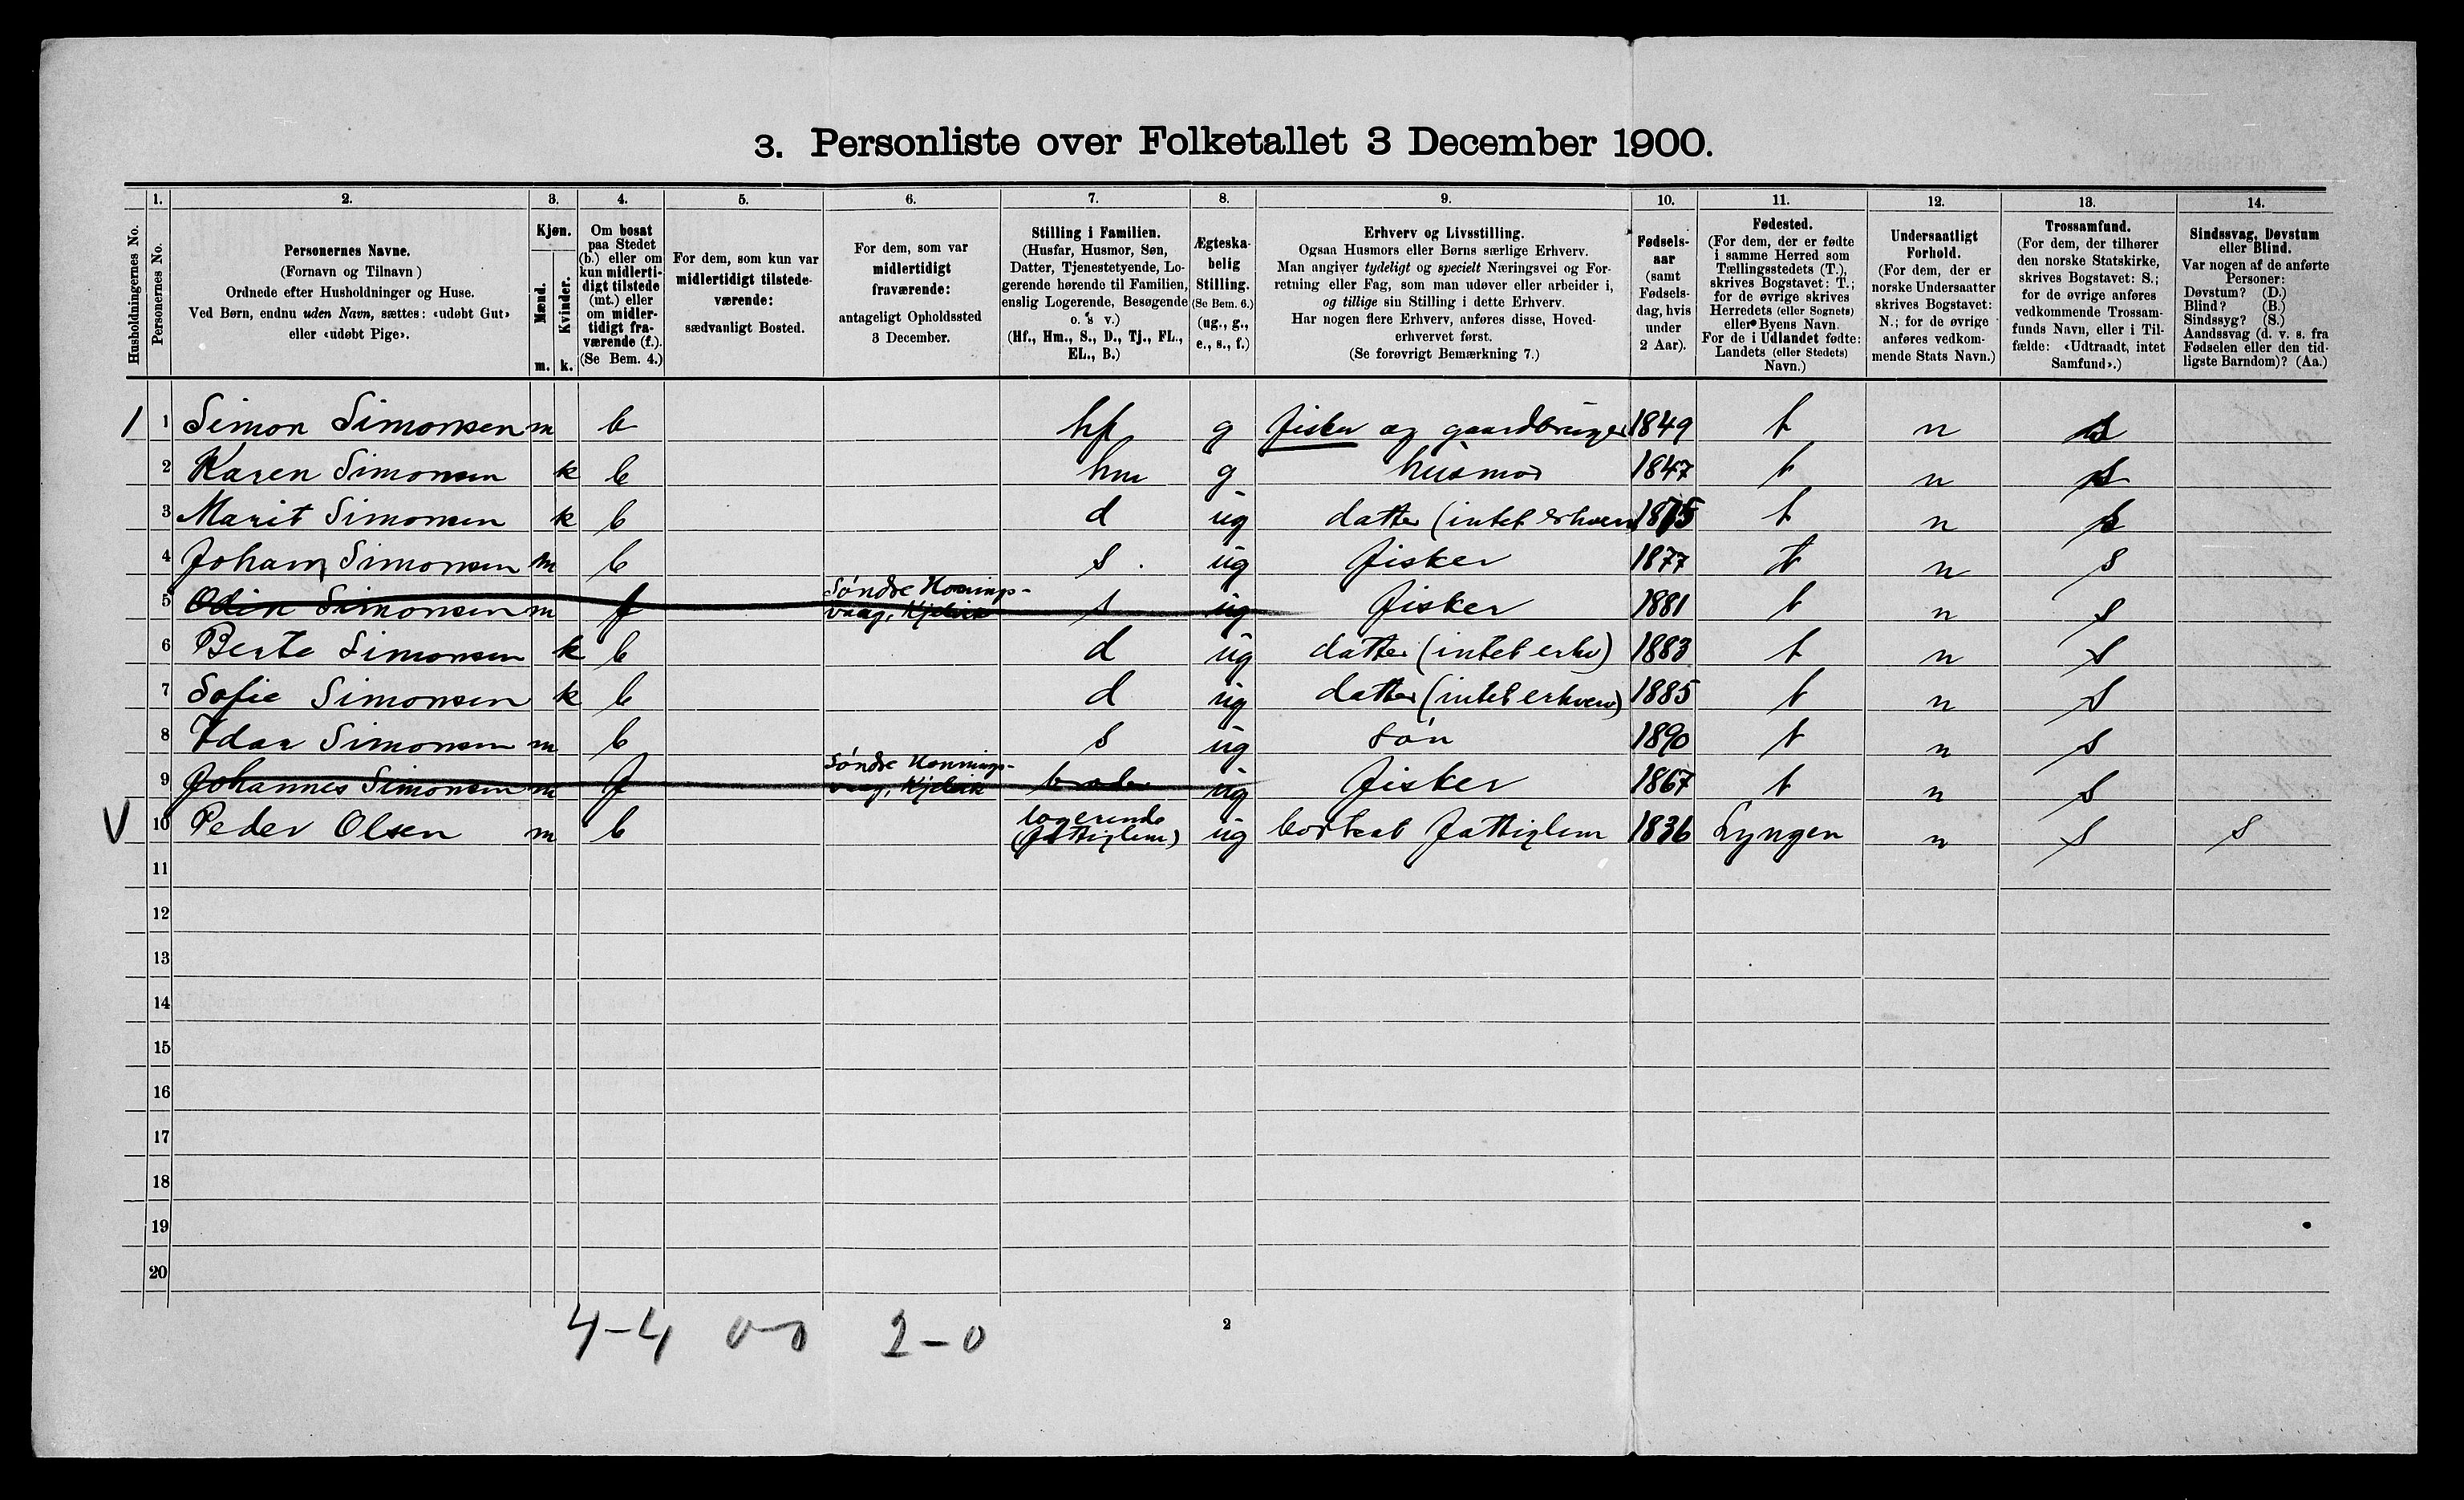 3. Personliste over Folketallet 3 December 1900.
Husholdningernes No.
1.
Personernes No.
2.
Personernes Navne.
(Fornavn og Tilnavn)
Ordnede efter Husholdninger og Huse.
Ved Børn, endnu uden Navn, sættes: «udøbt Gut»
eller «udøbt Pige».
3.
Kjøn.
Mænd.
Kvinder.
m. k.
4.
Om bosat
paa Stedet
(b.) eller om
kun midlerti-
digt tilstede
(mt.) eller
om midler-
tidigt fra-
værende (f.).
(Se Bem. 4.)
5.
For dem, som kun var
midlertidigt tilstede-
værende:
sædvanligt Bosted.
6.
For dem, som var
midlertidigt
fraværende:
antageligt Opholdssted
3 December.
7.
Stilling i Familien.
(Husfar, Husmor, Søn,
Datter, Tjenestetyende, Lo-
gerende hørende til Familien,
enslig Logerende, Besøgende
o. s v.)
(Hf., Hm., S., D., Tj., FL.,
EL., B.)
8.
Ægteska-
belig
Stilling.
(Se Bem. 6.)
(ug., g.,
e., s., f.)
9.
Erhverv og Livsstilling.
Ogsaa Husmors eller Børns særlige Erhverv.
Man angiver tydeligt og specielt Næringsvei og For-
retning eller Fag, som man udøver eller arbeider i,
og tillige sin Stilling i dette Erhverv.
Har nogen flere Erhverv, anføres disse, Hoved-
erhvervet først.
(Se forøvrigt Bemærkning 7.)
10.
Fødsels-
aar
(samt
Fødsels-
dag, hvis
under
2 Aar).
11.
Fødested.
(For dem, der er fødte
i samme Herred som
Tællingsstedets (T.),
skrives Bogstavet: T.;
for de øvrige skrives
Herredets (eller Sognets)
eller Byens Navn.
For de i Udlandet fødte:
Landets (eller Stedets)
Navn.)
12.
Undersaatligt
Forhold.
(For dem, der er
norske Undersaatter
skrives Bogstavet:
N.; for de øvrige
anføres vedkom-
mende Stats Navn.)
13.
Trossamfund.
(For dem, der tilhører
den norske Statskirke,
skrives Bogstavet: S.;
for de øvrige anføres
vedkommende Trossam-
funds Navn, eller i Til-
fælde: «Udtraadt, intet
Samfund».)
14.
Sindssvag, Døvstum
eller Blind.
Var nogen af de anførte
Personer:
Døvstum? (D.)
Blind? (B.)
Sindssyg? (S.)
Aandssvag (d. v. s. fra
Fødselen eller den tid-
ligste Barndom)? (Aa.)
1 1 Simon Simonsen m b hf g fisker og gaardbruger 1849 t n s
2 Karen Simonsen k b hm g husmor 1847 t n s
3 Marit Simonsen k b d ug datter (intet erhverv) 1875 t n s
4 Johan Simonsen m b s. ug fisker 1877 t n s
5 Odin Simonsen m f Søndre Honnings-
vaag, Kjelvik s ug fisker 1881 t n s
6 Berte Simonsen k b d ug datter (intet erhv) 1883 t n s
7 Sofie Simonsen k b d ug datter (intet erhverv) 1885 t n s
8 Idar Simonsen m b s ug søn 1890 t n s
9 Johannes Simonsen m f Søndre Honnings-
vaag, Kjelvik broder ug fisker 1867 t n s
V 10 Peder Olsen m b logerende
(fattiglem) ug bortsat fattiglem 1836 Lyngen n s s
11
12
13
14
15
16
17
18
19
20
4-4 0-0 2-0
2